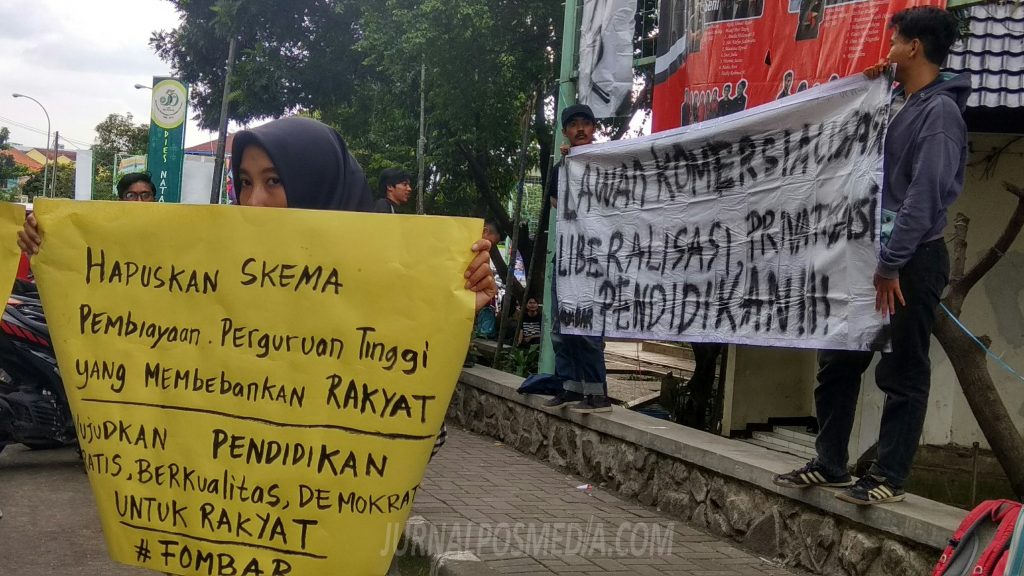 HAPUSKAN SKEMA
PEMBIAYAAN. PERGURUAN TINGGI
YANG MEMBEBANKAN RAKYAT
UJUDKAN PENDIDIKAN
ATIS, BERKUALITAS, DEMOKRAT
UNTUK RAKYAT
# FOMBAR
LAWAN KOMERSIALISASI,
LIBERALISASI, PRIVATISASI
PENDIDIKAN!!!
50
DIES NAT
JURNALPOSMEDIA.COM